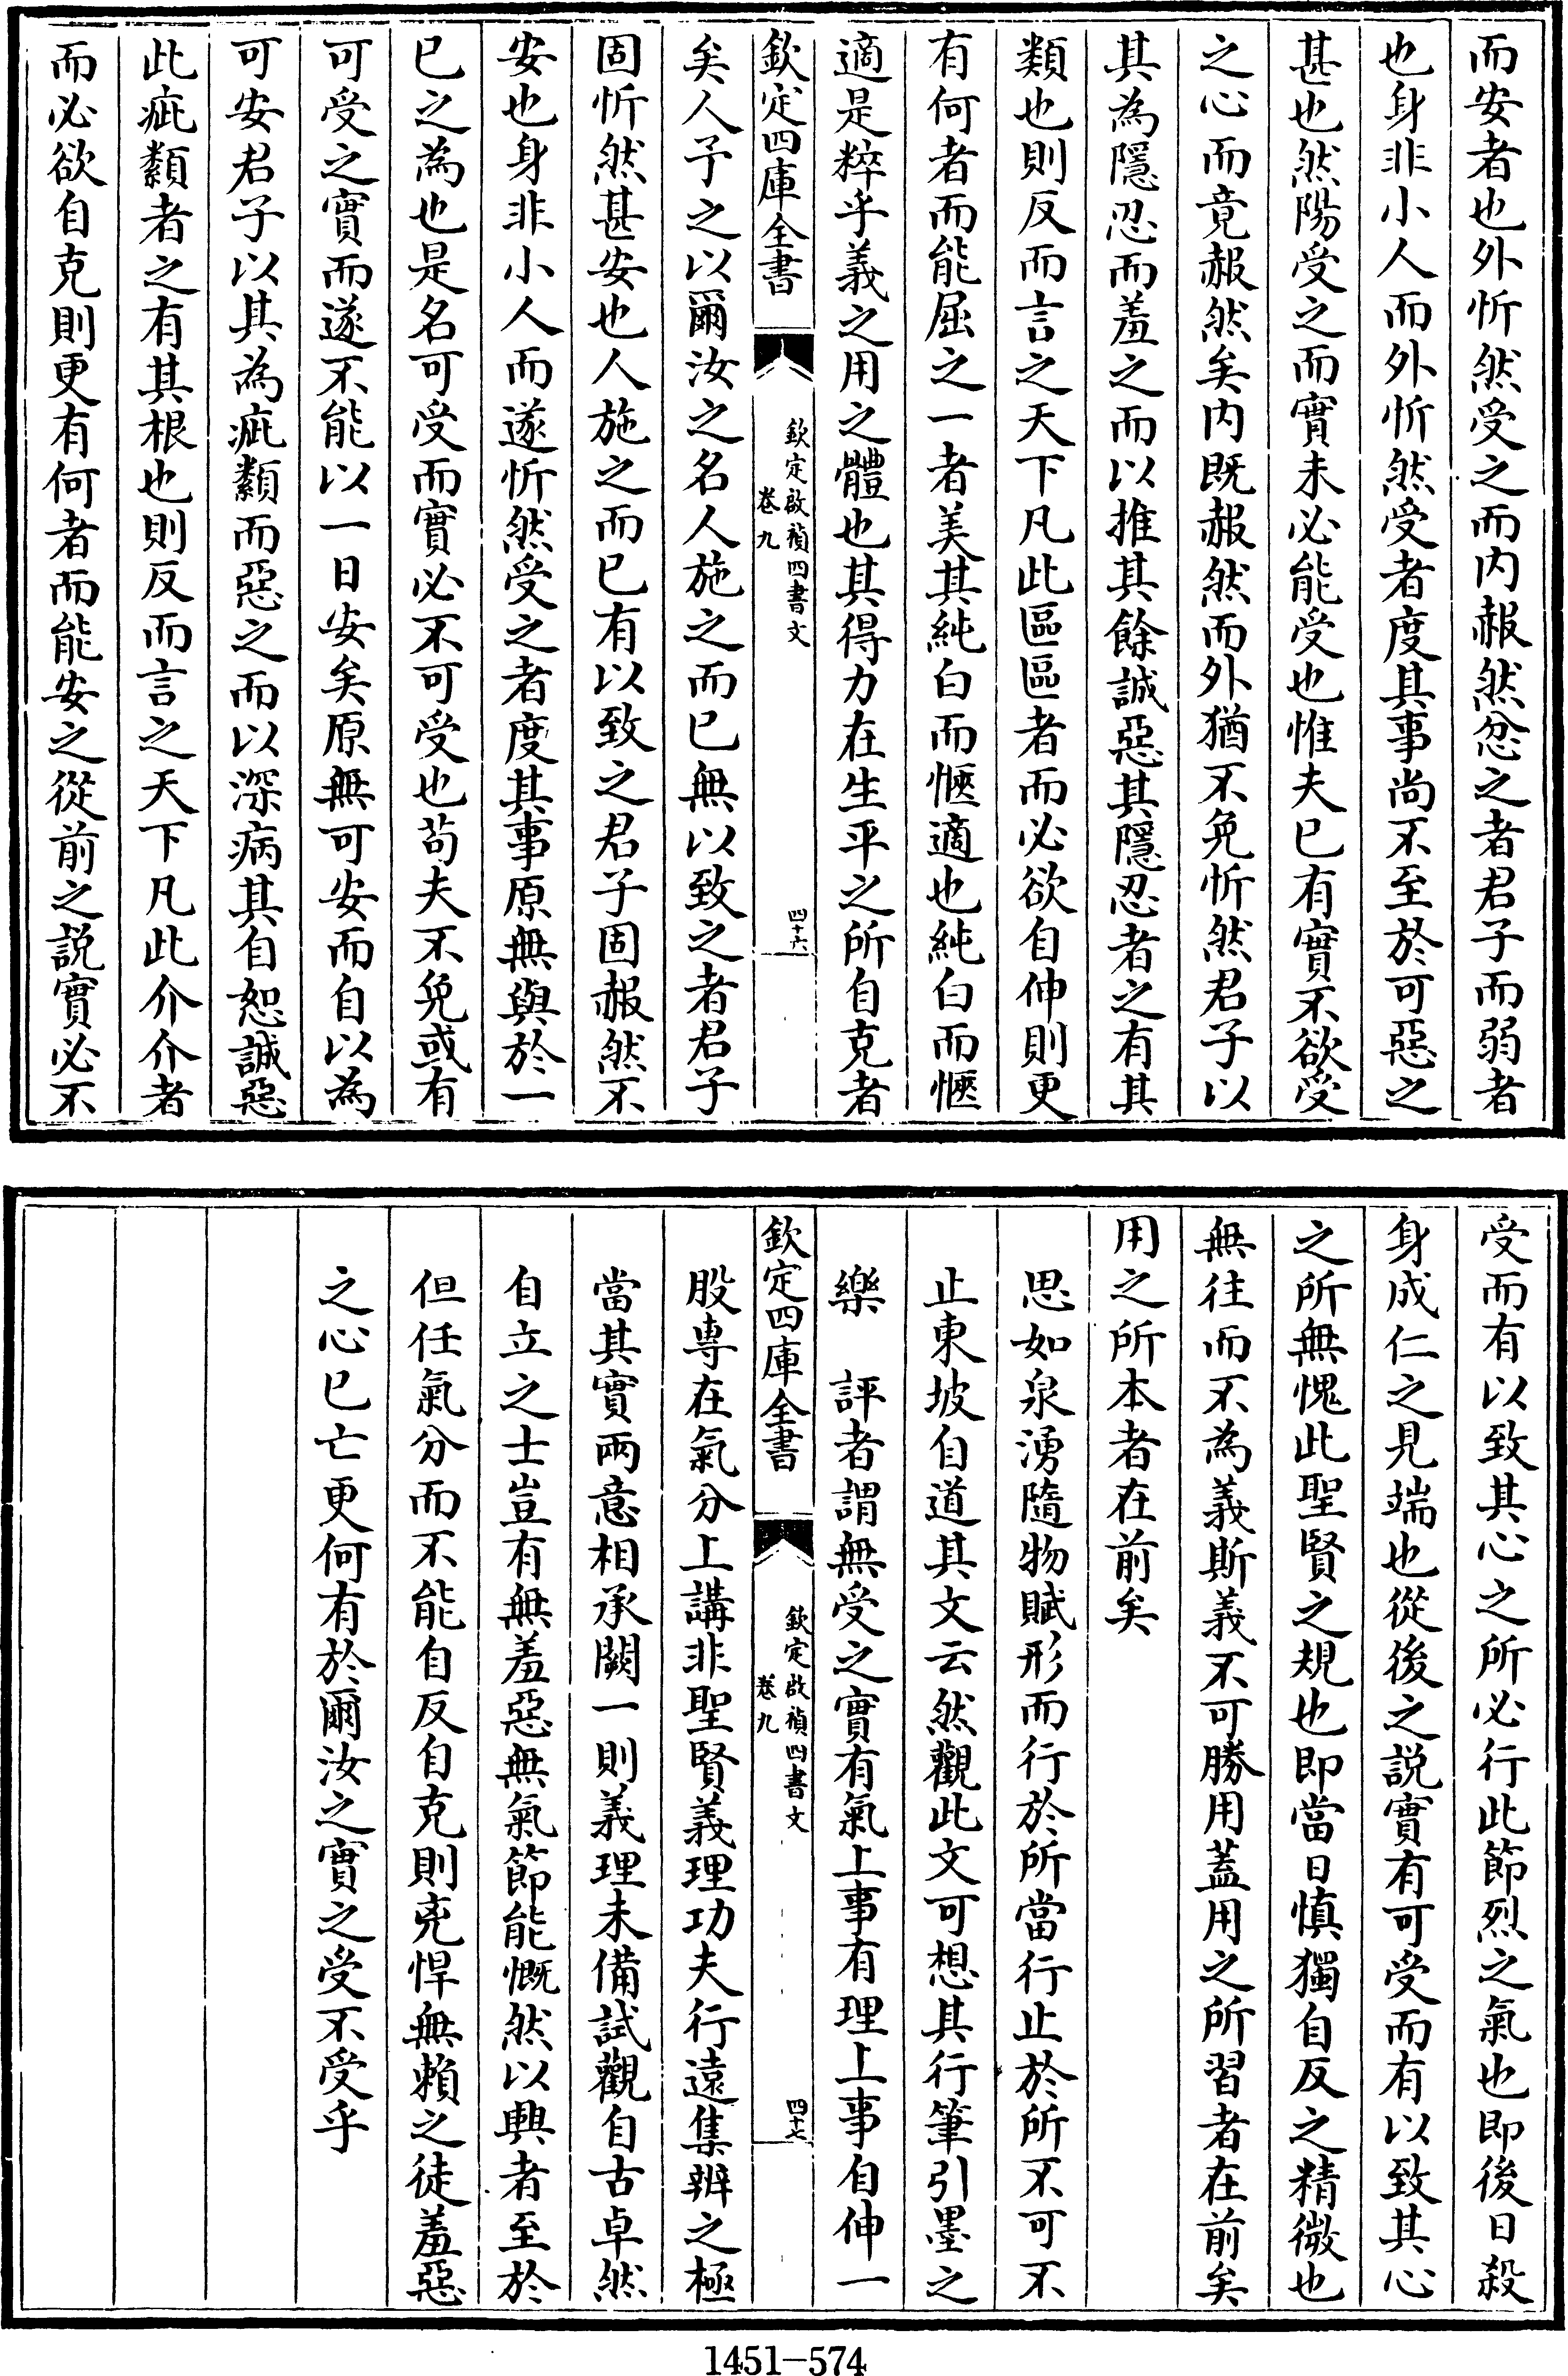 而安者也外忻然受之而内赧然忿之者君子而弱者
也身非小人而外忻然受者度其事尚不至於可惡之
甚也然陽受之而實未必能受也惟夫已有實不欲受
之心而竟赧然矣内既赧然而外猶不免忻然君子以
其為隱忍而羞之而以推其餘誠惡其隱忍者之有其
類也則反而言之天下凡此區區者而必欲自伸則更
有何者而能屈之一者美其純白而愜適也純白而愜
適是粹乎義之用之體也其得力在生平之所自克者
欽定四庫全書
欽定啟禎四書文
卷九
四十六
矣人予之以爾汝之名人施之而已無以致之者君子
固忻然甚安也人施之而已有以致之君子固赧然不
安也身非小人而遂忻然受之者度其事原無與於一
已之為也是名可受而實必不可受也苟夫不免或有
可受之實而遂不能以一日安矣原無可安而自以為
可安君子以其為疵纇而惡之而以深病其自恕誠惡
此疵纇者之有其根也則反而言之天下凡此介介者
而必欲自克則更有何者而能安之從前之説實必不
受而有以致其心之所必行此節烈之氣也即後日殺
身成仁之見端也從後之説實有可受而有以致其心
之所無愧此聖賢之規也即當日慎獨自反之精微也
無往而不為義斯義不可勝用蓋用之所習者在前矣
用之所本者在前矣
思如泉湧隨物賦形而行於所當行止於所不可不
止東坡自道其文云然觀此文可想其行筆引墨之
樂　評者謂無受之實有氣上事有理上事自伸一
欽定四庫全書
欽定啟禎四書文
卷九
四十七
股専在氣分上講非聖賢義理功夫行遠集辨之極
當其實兩意相承闕一則義理未備試觀自古卓然
自立之士豈有無羞惡無氣節能慨然以興者至於
但任氣分而不能自反自克則兇悍無賴之徒羞惡
之心已亡更何有於爾汝之實之受不受乎
1451-574